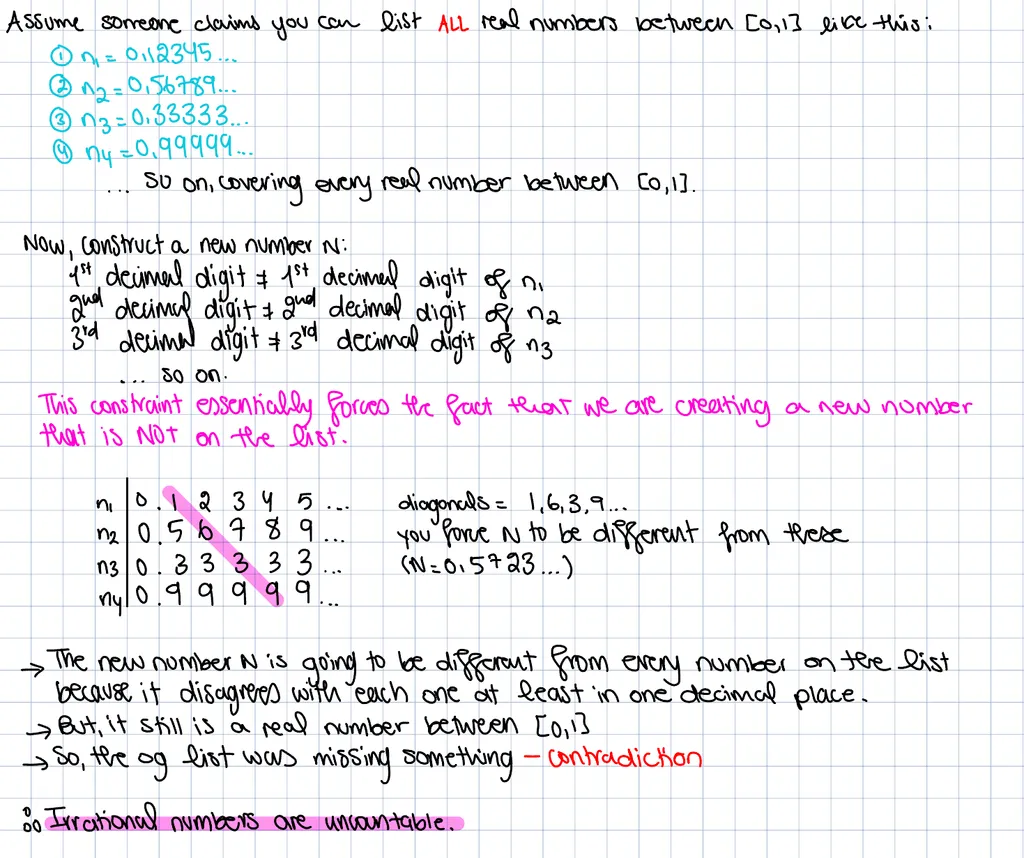 Assume someone claims you can list ALL real numbers between [0,1] like this:
① n₁ = 0.12345...
② n₂ = 0.56789...
③ n₃ = 0.33333...
④ n₄ = 0.99999...
... so on, covering every real number between [0,1].
Now, construct a new number N:
1st decimal digit ≠ 1st decimal digit of n₁
2nd decimal digit ≠ 2nd decimal digit of n₂
3rd decimal digit ≠ 3rd decimal digit of n₃
... so on.
This constraint essentially forces the fact that we are creating a new number
that is NOT on the list.
n₁ | 0. 1 2 3 4 5 ... diagonals = 1,6,3,9...
n₂ | 0. 5 6 7 8 9 ... you force N to be different from these
n₃ | 0. 3 3 3 3 3 ... (N=0.5723...)
n₄ | 0. 9 9 9 9 9 ...
→ The new number N is going to be different from every number on the list
because it disagrees with each one at least in one decimal place.
→ But, it still is a real number between [0,1]
→ So, the og list was missing something - contradiction
∴ Irrational numbers are uncountable.